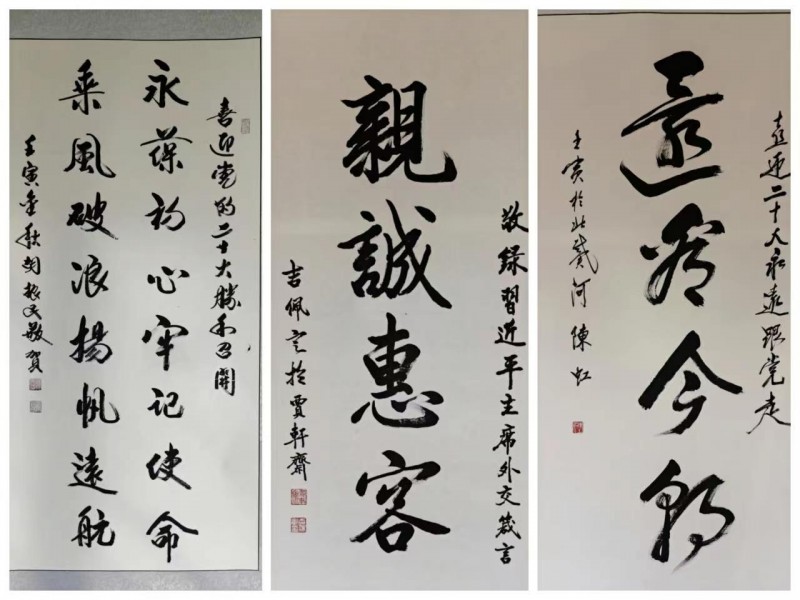 喜迎党的二十大勝利召開
永葆初心牢記使命
乘風破浪揚帆遠航
壬寅金秋 敬賀
敬錄習近平主席外交箴言
親誠惠容
吉佩 於賈軒齋
喜迎二十大永遠跟党走
還看今朝
壬寅於北戴河 陳虹